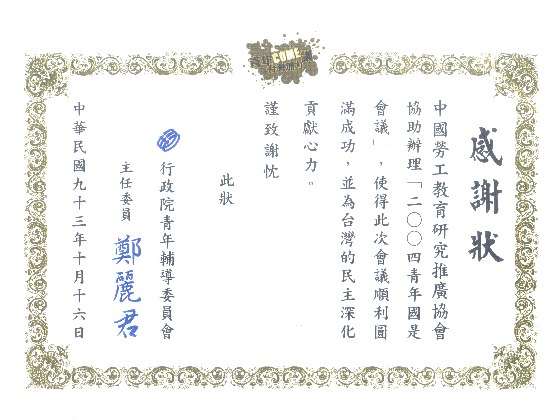 感謝狀
中國勞工教育研究推廣協會
協助辦理「二〇〇四青年國是
會議」，使得此次會議順利圓
滿成功，並為台灣的民主深化
貢獻心力。
謹致謝忱
此狀
行政院青年輔導委員會
主任委員 鄭麗君
中華民國九十三年十月十六日